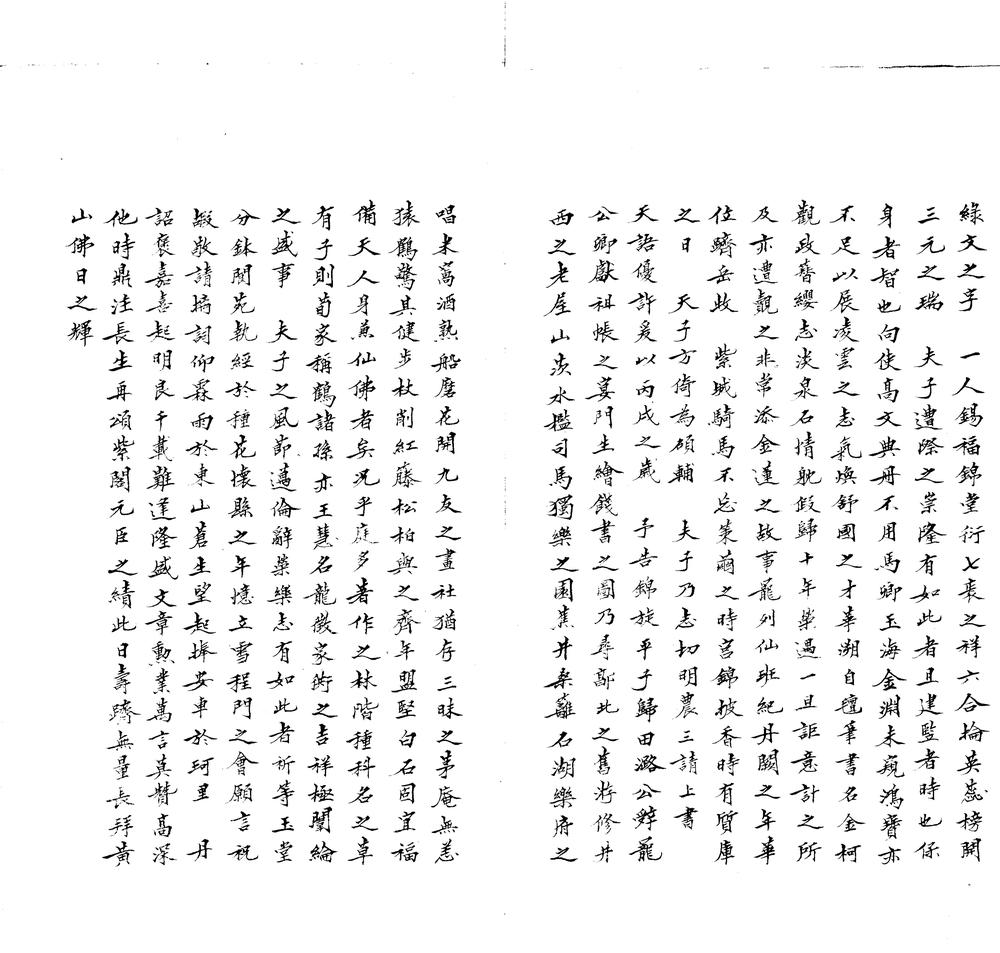 綠文之字　一人錫福錦堂衍七袠之祥六合掄英蕊榜開
三元之瑞　夫子遭際之崇隆有如此者且建監者時也保
身者智也向使高文典冊不用馬卿玉海金淵未窺鴻寶亦
不足以展凌雲之志氣煥舒國之才華溯自氊筆書名金柯
觀政簪纓志淡泉石情躭假歸十年榮遇一旦詎意計之所
及亦遭覯之非常添金蓮之故事龍列仙班紀丹闕之年華
位躋岳牧　紫城騎馬不忘策蹇之時宮錦披香時有質庫
之日　天子方倚為碩輔　夫子乃志切明農三請上書
天語優許爰以丙戌之歲　予告錦旋平子歸田潞公辭寵
公卿獻祖帳之宴門生繪餞書之圖乃尋鄗北之舊將修井
西之老屋山淡水檻司馬獨樂之園蕉井桑籬石湖樂府之
唱朱萬酒熟船磨花開九友之畫社猶存三昧之茅庵無恙
猿鶴驚其健步杖削紅藤松柏與之齊年盟堅白石固宜福
備天人身兼仙佛者矣况乎庭多著作之林階種科名之草
有子則荀家稱鶴諸孫亦王慧名龍徵家衖之吉祥極闈綸
之盛事　夫子之風節邁倫辭榮樂志有如此者祈等玉堂
分鉢閬苑執經於種花懷縣之年憶立雪程門之會願言祝
嘏敢請摛詞仰霖雨於東山蒼生望起捧安車於珂里　丹
詔褒嘉喜起明良千載難逢隆盛文章勳業萬言莫贊高深
他時鼎注長生再頌紫閣元臣之績此日壽躋無量長拜黃
山佛日之輝